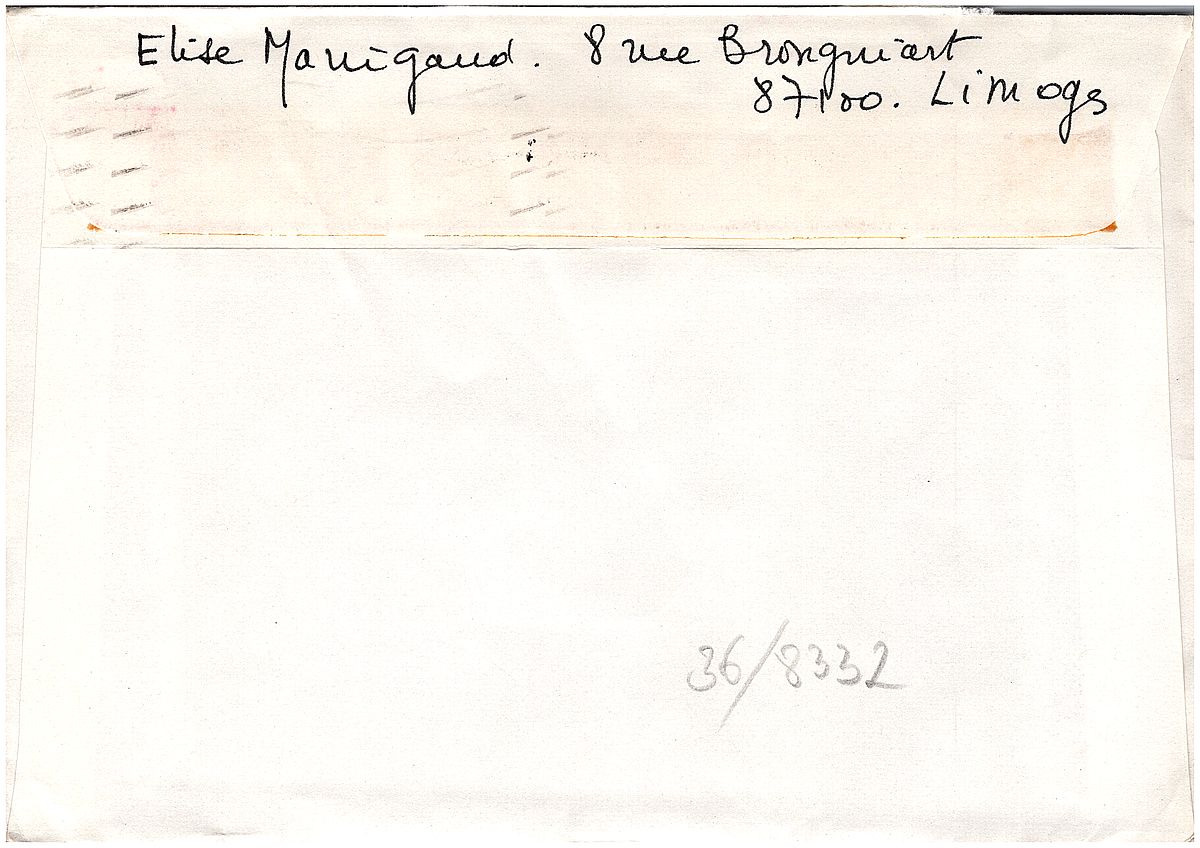 Elise Manigaud. 8 rue Brongniart
87100. Limoges
36/8332